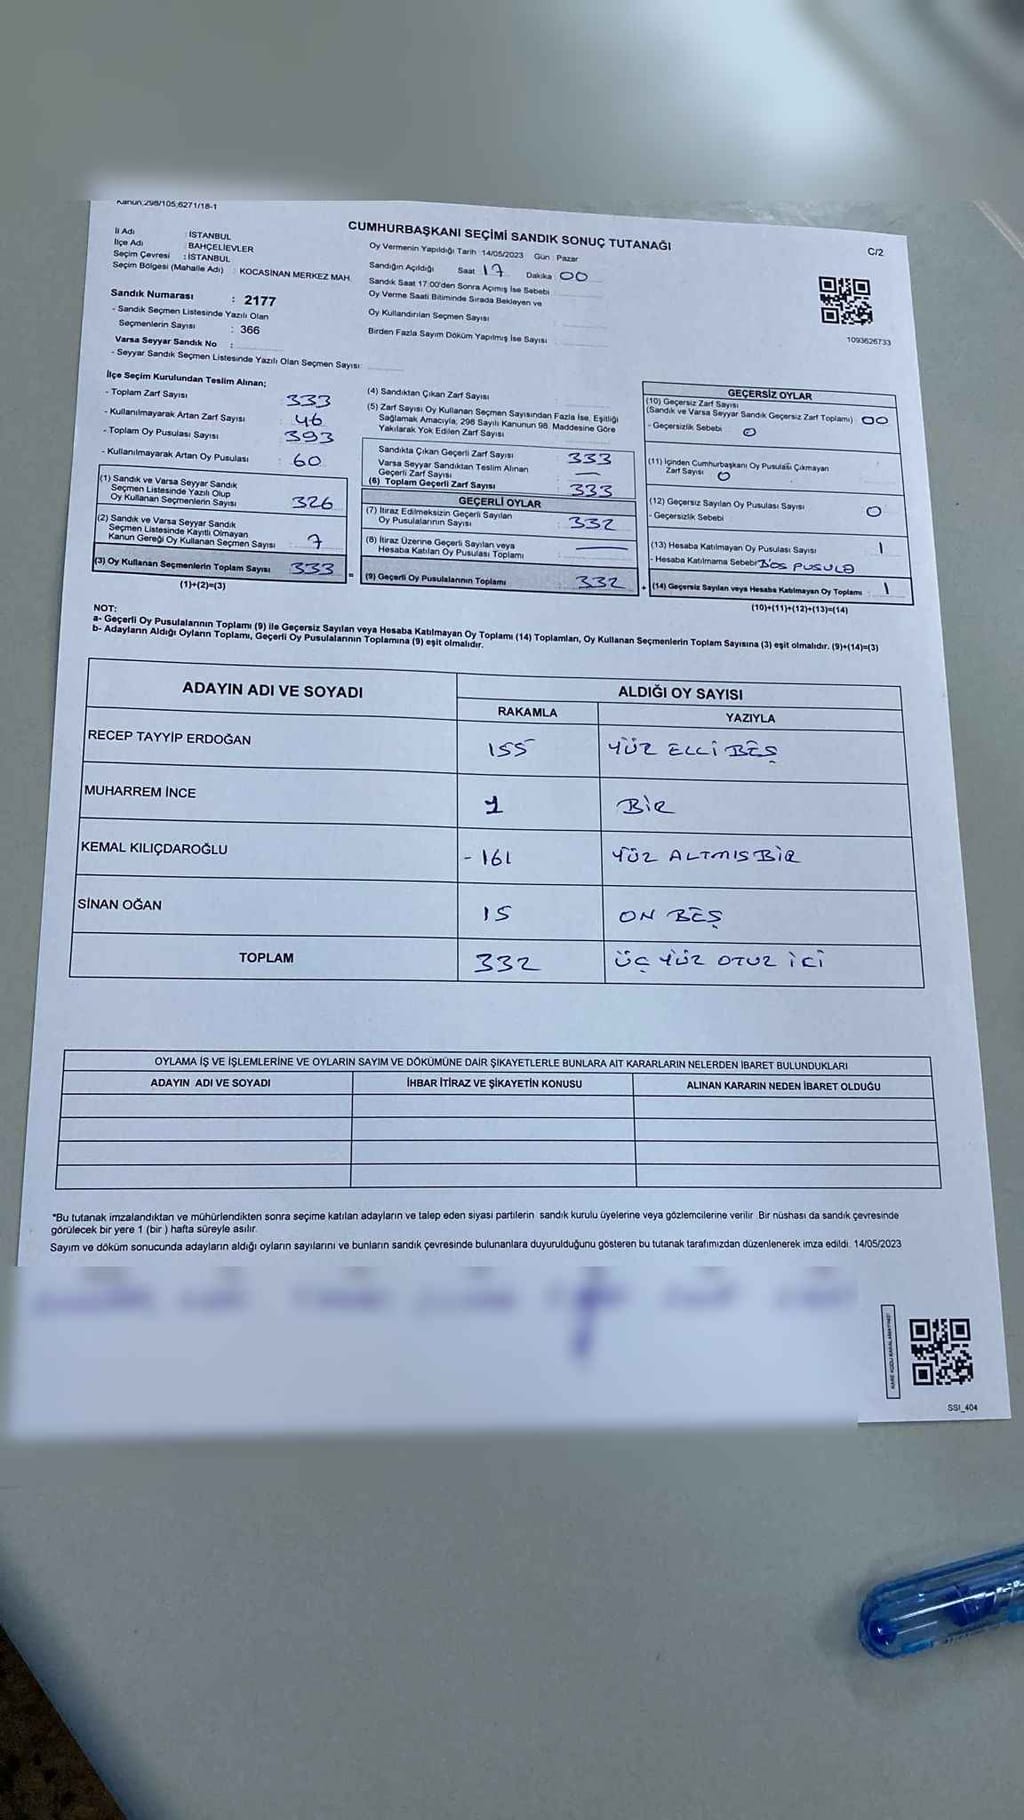 Kanun,298/105,6271/18-1
CUMHURBAŞKANI SEÇİMİ SANDIK SONUÇ TUTANAĞI
C/2
İl Adı : İSTANBUL
İlçe Adı : BAHÇELİEVLER
Seçim Çevresi : İSTANBUL
Seçim Bölgesi (Mahalle Adı) : KOCASİNAN MERKEZ MAH.
Sandık Numarası : 2177
- Sandık Seçmen Listesinde Yazılı Olan
Seçmenlerin Sayısı : 366
Varsa Seyyar Sandık No :
- Seyyar Sandık Seçmen Listesinde Yazılı Olan Seçmen Sayısı:
Oy Vermenin Yapıldığı Tarih 14/05/2023 Gün : Pazar
Sandığın Açıldığı Saat 17 Dakika 00
Sandık Saat 17:00'den Sonra Açımış İse Sebebi
Oy Verme Saati Bitiminde Sırada Bekleyen ve
Oy Kullandırılan Seçmen Sayısı
Birden Fazla Sayım Döküm Yapılmış İse Sayısı
1093626733
İlçe Seçim Kurulundan Teslim Alınan;
- Toplam Zarf Sayısı : 333
- Kullanılmayarak Artan Zarf Sayısı : 46
- Toplam Oy Pusulası Sayısı : 393
- Kullanılmayarak Artan Oy Pusulası : 60
(1) Sandık ve Varsa Seyyar Sandık
Seçmen Listesinde Yazılı Olup
Oy Kullanan Seçmenlerin Sayısı 326
(2) Sandık ve Varsa Seyyar Sandık
Seçmen Listesinde Kayıtlı Olmayan
Kanun Gereği Oy Kullanan Seçmen Sayısı 7
(3) Oy Kullanan Seçmenlerin Toplam Sayısı 333
(1)+(2)=(3)
(4) Sandıktan Çıkan Zarf Sayısı
(5) Zarf Sayısı Oy Kullanan Seçmen Sayısından Fazla İse, Eşitliği
Sağlamak Amacıyla; 298 Sayılı Kanunun 98. Maddesine Göre
Yakılarak Yok Edilen Zarf Sayısı
Sandıkta Çıkan Geçerli Zarf Sayısı 333
Varsa Seyyar Sandıktan Teslim Alınan
Geçerli Zarf Sayısı —
(6) Toplam Geçerli Zarf Sayısı 333
GEÇERLİ OYLAR
(7) İtiraz Edilmeksizin Geçerli Sayılan
Oy Pusulalarının Sayısı 332
(8) İtiraz Üzerine Geçerli Sayılan veya
Hesaba Katılan Oy Pusulası Toplamı —
= (9) Geçerli Oy Pusulalarının Toplamı 332
GEÇERSİZ OYLAR
(10) Geçersiz Zarf Sayısı
(Sandık ve Varsa Seyyar Sandık Geçersiz Zarf Toplamı) 00
- Geçersizlik Sebebi 0
(11) İçinden Cumhurbaşkanı Oy Pusulası Çıkmayan
Zarf Sayısı 0
(12) Geçersiz Sayılan Oy Pusulası Sayısı 0
- Geçersizlik Sebebi
(13) Hesaba Katılmayan Oy Pusulası Sayısı 1
- Hesaba Katılmama Sebebi BOŞ PUSULA
+ (14) Geçersiz Sayılan veya Hesaba Katılmayan Oy Toplamı 1
(10)+(11)+(12)+(13)=(14)
NOT:
a- Geçerli Oy Pusulalarının Toplamı (9) ile Geçersiz Sayılan veya Hesaba Katılmayan Oy Toplamı (14) Toplamları, Oy Kullanan Seçmenlerin Toplam Sayısına (3) eşit olmalıdır. (9)+(14)=(3)
b- Adayların Aldığı Oyların Toplamı, Geçerli Oy Pusulalarının Toplamına (9) eşit olmalıdır.
ADAYIN ADI VE SOYADI
ALDIĞI OY SAYISI
RAKAMLA YAZIYLA
RECEP TAYYİP ERDOĞAN 155 YÜZ ELLİ BEŞ
MUHARREM İNCE 1 BİR
KEMAL KILIÇDAROĞLU - 161 YÜZ ALTMIS BİR
SİNAN OĞAN 15 ON BEŞ
TOPLAM 332 ÜÇ YÜZ OTUZ İCİ
OYLAMA İŞ VE İŞLEMLERİNE VE OYLARIN SAYIM VE DÖKÜMÜNE DAİR ŞİKAYETLERLE BUNLARA AİT KARARLARIN NELERDEN İBARET BULUNDUKLARI
ADAYIN ADI VE SOYADI İHBAR İTİRAZ VE ŞİKAYETİN KONUSU ALINAN KARARIN NEDEN İBARET OLDUĞU
*Bu tutanak imzalandıktan ve mühürlendikten sonra seçime katılan adayların ve talep eden siyasi partilerin sandık kurulu üyelerine veya gözlemcilerine verilir. Bir nüshası da sandık çevresinde
görülecek bir yere 1 (bir) hafta süreyle asılır.
Sayım ve döküm sonucunda adayların aldığı oyların sayılarını ve bunların sandık çevresinde bulunanlara duyurulduğunu gösteren bu tutanak tarafımızdan düzenlenerek imza edildi. 14/05/2023
SSI_404